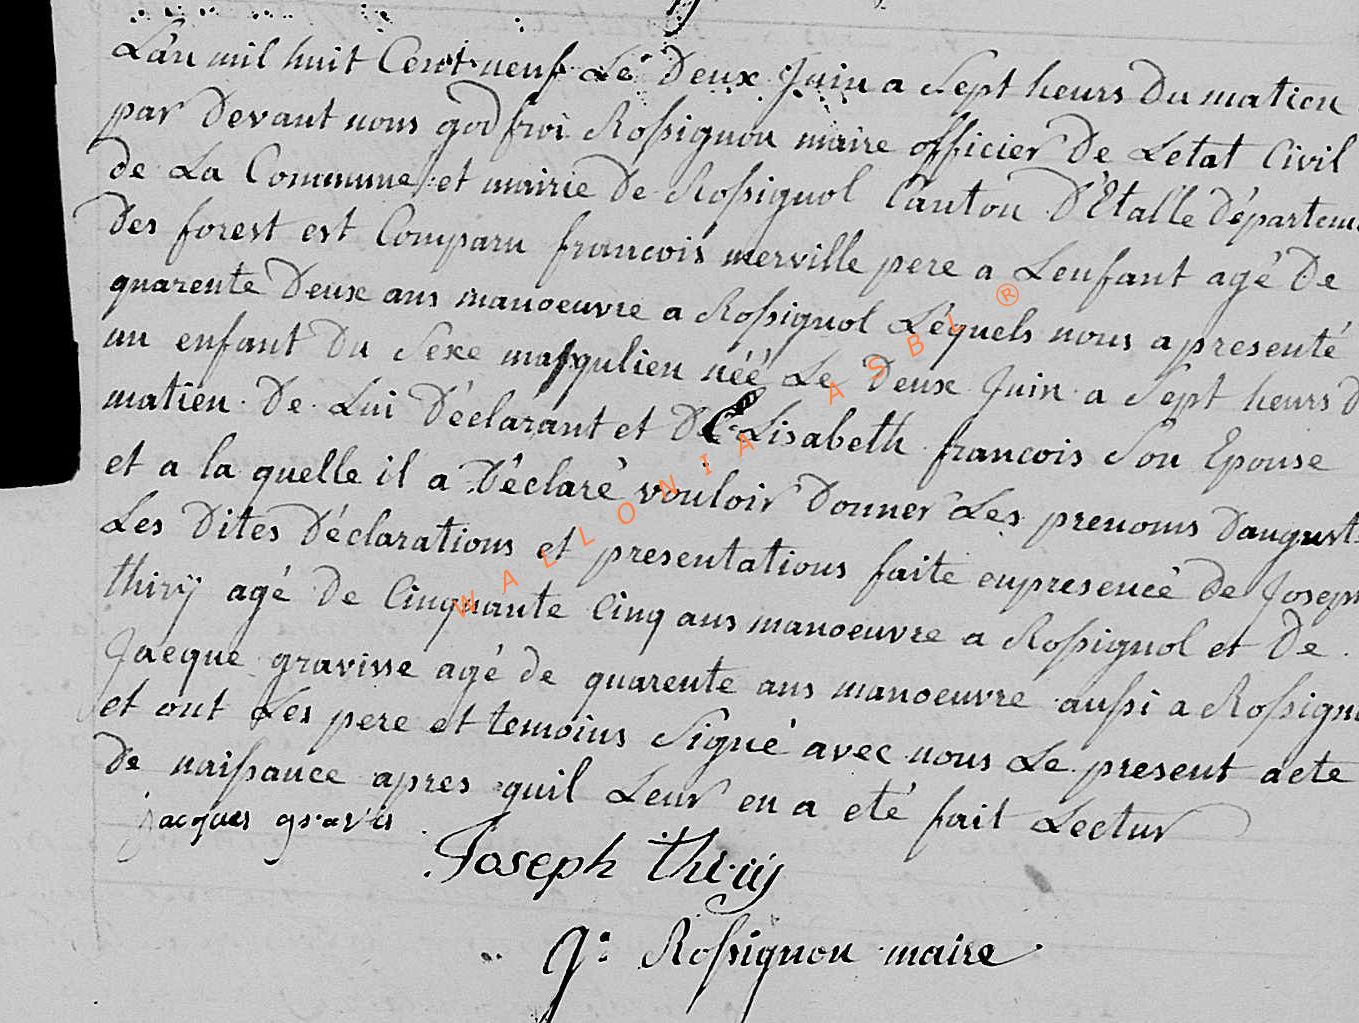 L'an mil huit Cent neuf Le Deux Juin a Sept heurs Du matien
par Devant nous godfroi Rossignon maire officier De Letat Civil
de La Commune et mairie De Rossignol Canton D'Etalle Départem
Des forest est Comparu francois merville pere a Lenfant agé De
quarente Deux ans manoeuvre a Rossignol Léquels nous a presenté
un enfant Du Sexe masqulien néé Le Deux Juin a Sept heurs D
matien De Lui Déclarant et D'Elisabeth francois Son Epouse
et a la quelle il a Déclaré vouloir Donner Les prenoms Daugust
Les Dites Déclarations et presentations faite enpresencé de Joseph
thirÿ agé De Cinquante Cinq ans manoeuvre a Rossignol et De
Jacque gravisse agé de quarente ans manoeuvre aussi a Rossigno
et ont Les pere et temoins Signé avec nous Le present acte
De naissance apres quil Leur en a eté fait Lectur
jacques gravis
Joseph thiriÿ
g: Rossignon maire
WALLONIA ASBL ®